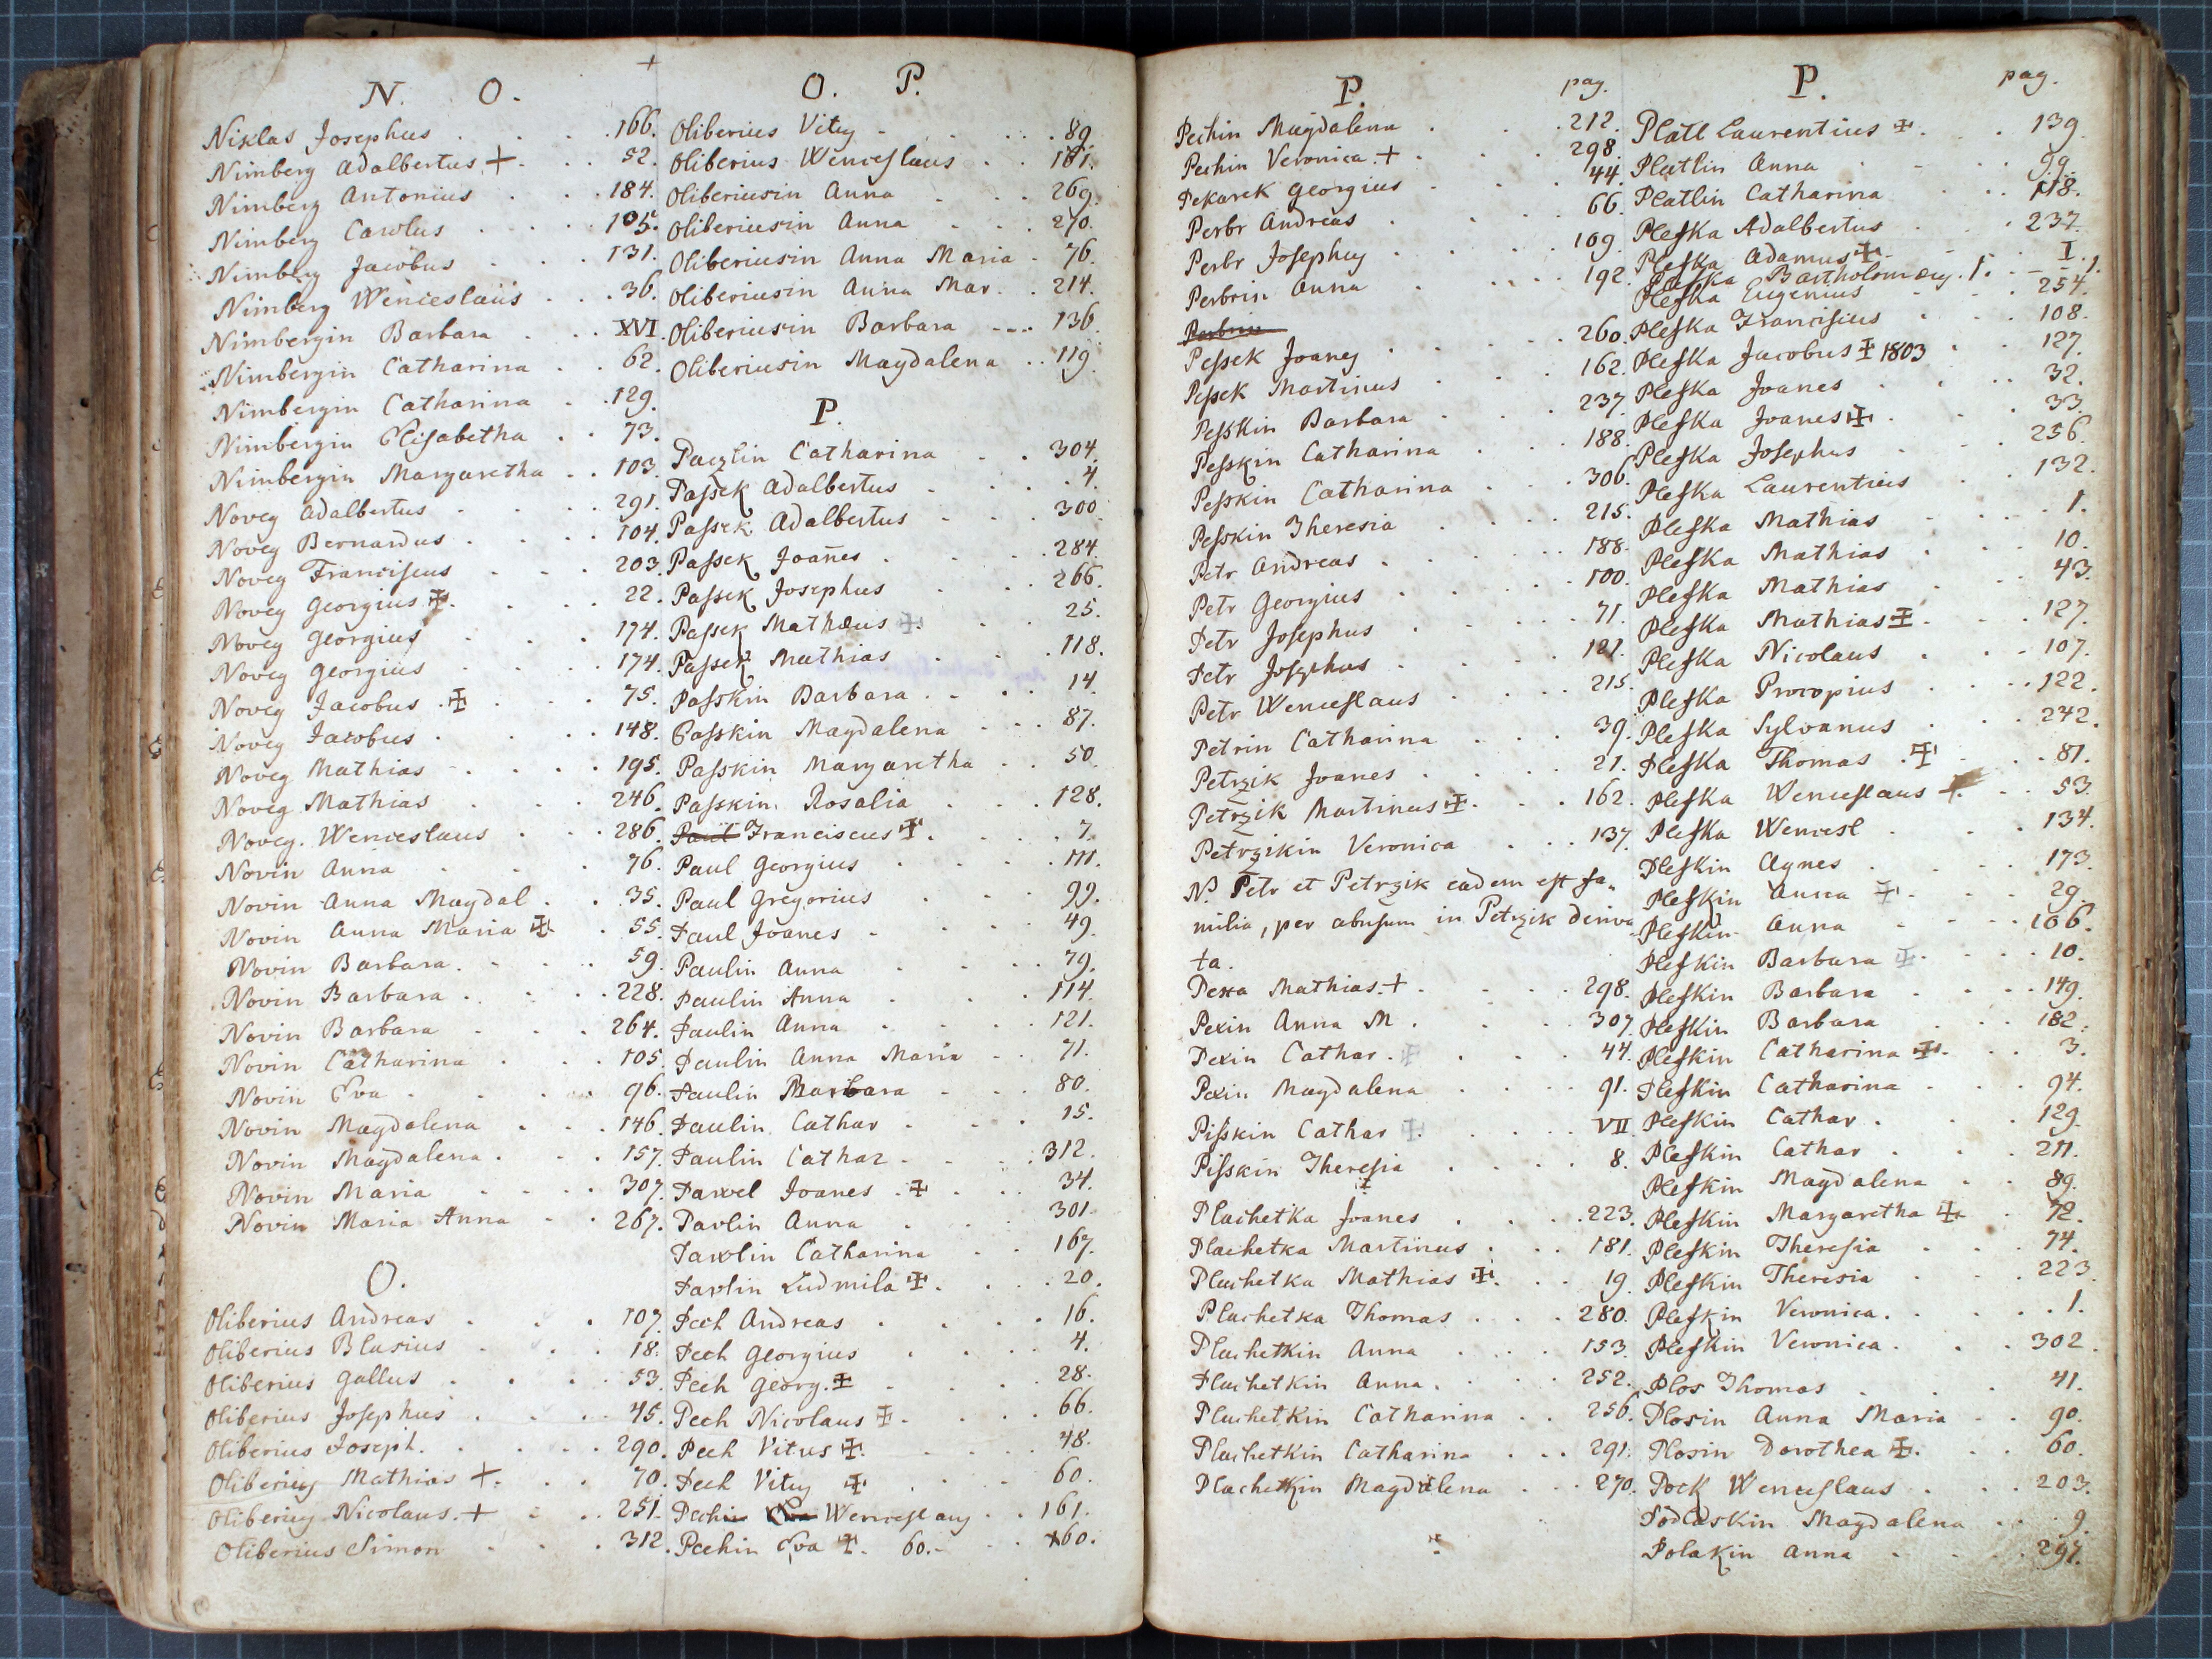 N. O.
Niklas Josephus . . . . 166.
Nimberg Adalbertus + . . . 52.
Nimberg Antonius . . . 184.
Nimberg Carolus . . . . 105.
Nimberg Jacobus . . . 131.
Nimberg Wenceslaus . . . 36.
Nimbergin Barbara . . XVI
Nimbergin Catharina . . 62.
Nimbergin Catharina . . 129.
Nimbergin Elisabetha . . 73.
Nimbergin Margaretha . . 103
Novey Adalbertus . . . . 291.
Novey Bernardus . . . . 104.
Novey Franciscus . . . 203
Novey Georgius ✠ . . . 22.
Novey Georgius . . . 174.
Novey Georgius . . . . 174.
Novey Jacobus . ✠ . . . 75.
Novey Jacobus . . . . 148.
Novey Mathias . . . . 195.
Novey Mathias . . . 246.
Novey. Wenceslaus . . . 286.
Novin Anna . . . 76.
Novin Anna Magdal . . 35.
Novin Anna Maria ✠ . 55.
Novin Barbara . . . . 59.
Novin Barbara . . . . 228.
Novin Barbara . . . 264.
Novin Catharina . . . 105.
Novin Eva . . . . 96.
Novin Magdalena . . . 146.
Novin Magdalena . . . 157.
Novin Maria . . . . 307.
Novin Maria Anna . . 267.
O.
Oliberius Andreas . . . 107.
Oliberius Blasius . . . 18.
Oliberius Gallus . . . . 53.
Oliberius Josephus . . . . 45.
Oliberius Joseph. . . . . 290.
Oliberius Mathias + . . . 70.
Oliberius Nicolaus. + . . . 251.
Oliberius Simon . . . 312.
O. P.
Oliberius Vitus . . . . 89.
Oliberius Wenceslaus . . 181.
Oliberiusin Anna . . . 269.
Oliberiusin Anna . . . 270.
Oliberiusin Anna Maria . 76.
Oliberiusin Anna Mar. . 214.
Oliberiusin Barbara . . . 136.
Oliberiusin Magdalena . . 119.
P.
Catharina . . 304.
Passek Adalbertus . . . . 4.
Passek Adalbertus . . . 300
Passek Joanes . . . . 284.
Passek Josephus . . . 266.
Passek Mathæus ✠ . . 25.
Passek Mathias . . . 118.
Passkin Barbara . . . . 14
Passkin Magdalena . . . 87.
Passkin Margaretha . . 50.
Passkin Rosalia . . . 128.
Paul Franciscus ✠ . . . . 7.
Paul Georgius . . . . 111.
Paul Gregorius . . . 99.
Paul Joanes . . . . 49.
Paulin Anna . . . . 79.
Paulin Anna . . . . 114.
Paulin Anna . . . . 121.
Paulin Anna Maria . . 71.
Paulin Barbara . . . 80.
Paulin Cathar . . . . 15.
Paulin Cathar . . . . 312.
Pawel Joanes . ✠ . . . 34.
Pavlin Anna . . . 301.
Pawlin Catharina . . 167.
Pavlin Ludmila ✠ . . . 20.
Pech Andreas . . . . 16.
Pech Georgius . . . . 4.
Pech Georg. ✠ . . . 28.
Pech Nicolaus ✠ . . . . 66.
Pech Vitus ✠ . . . . 48.
Pech Vitus ✠ . . . . 60.
Pechin Eva Wenceslaus . . 161.
Pechin Eva ✠. 60. . . 160.
P. pag.
Pechin Magdalena . . . 212.
Pechin Veronica. + . . . 298.
Pekarek Georgius . . . 44.
Perbr Andreas . . . . 66.
Perbr Josephus . . . . 109.
Perbrin Anna . . . . 192.
Perbrin
Pessek Joanes . . . . 260.
Pessek Martinus . . . 162.
Pesskin Barbara . . . 237.
Pesskin Catharina . . . 188.
Pesskin Catharina . . . 306.
Pesskin Theresia . . . 215.
Petr Andreas . . . . 188.
Petr Georgius . . . . 100.
Petr Josephus . . . . 71.
Petr Josephus . . . . 121.
Petr Wenceslaus . . . . 215.
Petrin Catharina . . . 39.
Petrzik Joanes . . . . 21.
Petrzik Martinus ✠ . . . 162.
Petrzikin Veronica . . . 137.
N. Petr et Petrzik eadem est fa„
milia, per abusum in Petrzik deriva
ta.
Pexa Mathias. + . . . 298.
Pexin Anna M . . . 307.
Pexin Cathar. ✠ . . . 44.
Pexin Magdalena . . . . 91.
Pisskin Cathar ✠ . . . VII
Pisskin Theresia . . . . 8.
Plachetka Joanes . . . . 223.
Plachetka Martinus . . . 181.
Plachetka Mathias ✠ . . . 19.
Plachetka Thomas . . . . 280.
Plachetkin Anna . . . . 153.
Plachetkin Anna. . . . 252.
Plachetkin Catharina . . 256.
Plachetkin Catharina . . . 291.
Plachetkin Magdalena . . . 270.
P. pag.
Platl Laurentius ✠ . . . 139.
Platlin Anna . . . 99.
Platlin Catharina . . . 118.
Pleska Adalbertus . . . 237.
Pleska Adamus ✠ . . . I.
Pleska Bartholomæus. 1. . . . 1.
Pleska Eugenius . . . 254.
Pleska Franciscus . . . 108.
Pleska Jacobus ✠ 1803 . . 127.
Pleska Joanes . . . . 32.
Pleska Joanes ✠ . . . 33.
Pleska Josephus . . . 256.
Pleska Laurentius . . 132.
Pleska Mathias . . . . 1.
Pleska Mathias . . . 10.
Pleska Mathias . . . 43.
Pleska Mathias ✠ . . . 127.
Pleska Nicolaus . . . 107.
Pleska Procopius . . . . 122.
Pleska Sylvanus . . . 242.
Pleska Thomas . ✠ . . . 81.
Pleska Wenceslaus + . . . 53.
Pleska Wencesl . . . 134.
Pleskin Agnes . . . . 173.
Pleskin Anna ✠ . . . 29.
Pleskin Anna . . . . 106.
Pleskin Barbara ✠ . . . . 10.
Pleskin Barbara . . . . 149.
Pleskin Barbara . . . 182.
Pleskin Catharina ✠ . . . 3.
Pleskin Catharina . . . 94.
Pleskin Cathar . . . . 129.
Pleskin Cathar . . . . 211.
Pleskin Magdalena . . . 89.
Pleskin Margaretha ✠ . 72.
Pleskin Theresia . . . 74.
Pleskin Theresia . . . 223.
Pleskin Veronica. . . . . 1.
Pleskin Veronica . . . 302.
Plos Thomas . . . . 41.
Plosin Anna Maria . . 90.
Plosin Dorothea ✠ . . . 60.
Pock Wenceslaus . . . 203.
Magdalena . . . 9.
Polakin Anna . . . . 297.